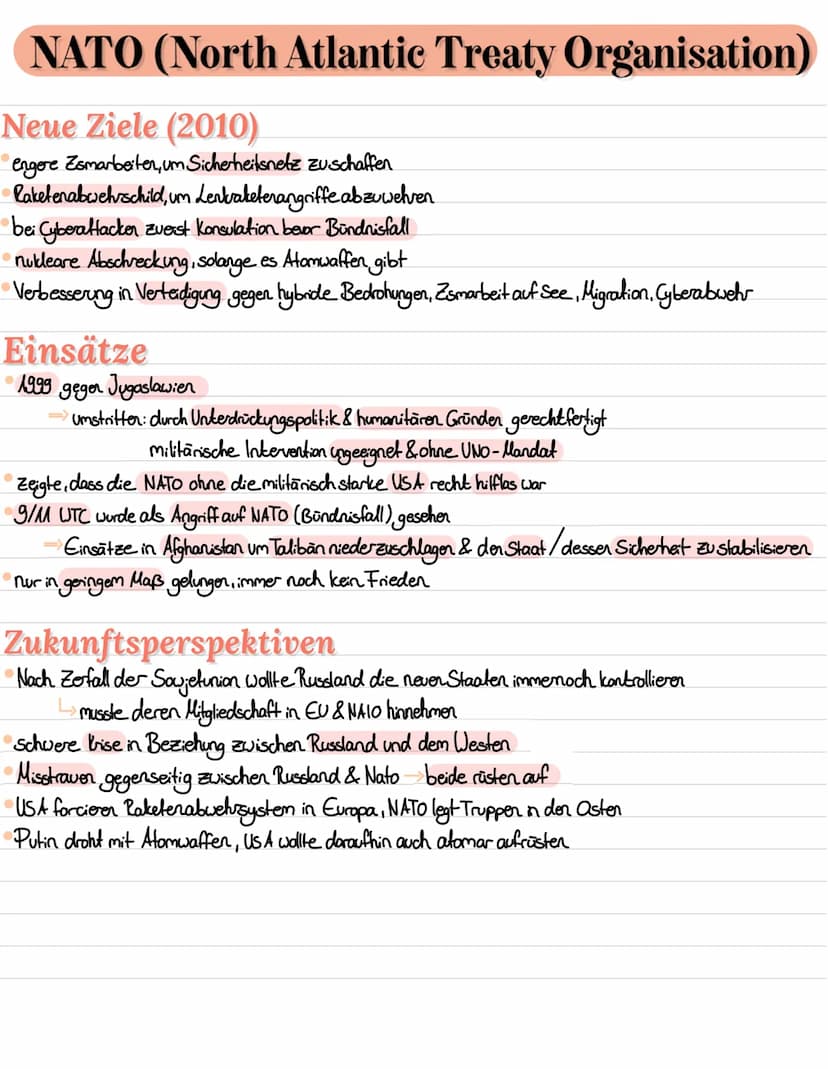 NATO (North Atlantic Treaty Organisation)
Neue Ziele (2010)
• engere Zsmarbeiten, um Sicherheitsnetz zu schaffen
• Raketenabwehrschild, um Lenkraketenangriffe abzuwehren
• bei Cyberattacken zuerst Konsulation bevor Bündnisfall
• nukleare Abschreckung, solange es Atomwaffen gibt
• Verbesserung in Verteidigung gegen hybride Bedrohungen, Zsmarbeit auf See, Migration, Cyberabwehr
Einsätze
• 1999 gegen Jugoslawien
⇒ umstritten: durch Unterdrückungspolitik & humanitären Gründen gerechtfertigt
militärische Intervention ungeeignet & ohne UNO-Mandat
• zeigte, dass die NATO ohne die militärisch starke USA recht hilflos war
• 9/11 WTC wurde als Angriff auf NATO (Bündnisfall) gesehen
⇒ Einsätze in Afghanistan um Taliban niederzuschlagen & den Staat / dessen Sicherheit zu stabilisieren
• nur in geringem Maß gelungen, immer noch kein Frieden
Zukunftsperspektiven
• Nach Zerfall der Sowjetunion wollte Russland die neuen Staaten immernoch kontrollieren
↳ musste deren Mitgliedschaft in EU & NATO hinnehmen
• schwere Krise in Beziehung zwischen Russland und dem Westen
• Misstrauen gegenseitig zwischen Russland & Nato → beide rüsten auf
• USA forcieren Raketenabwehrsystem in Europa, NATO legt Truppen in den Osten
• Putin droht mit Atomwaffen, USA wollte daraufhin auch atomar aufrüsten